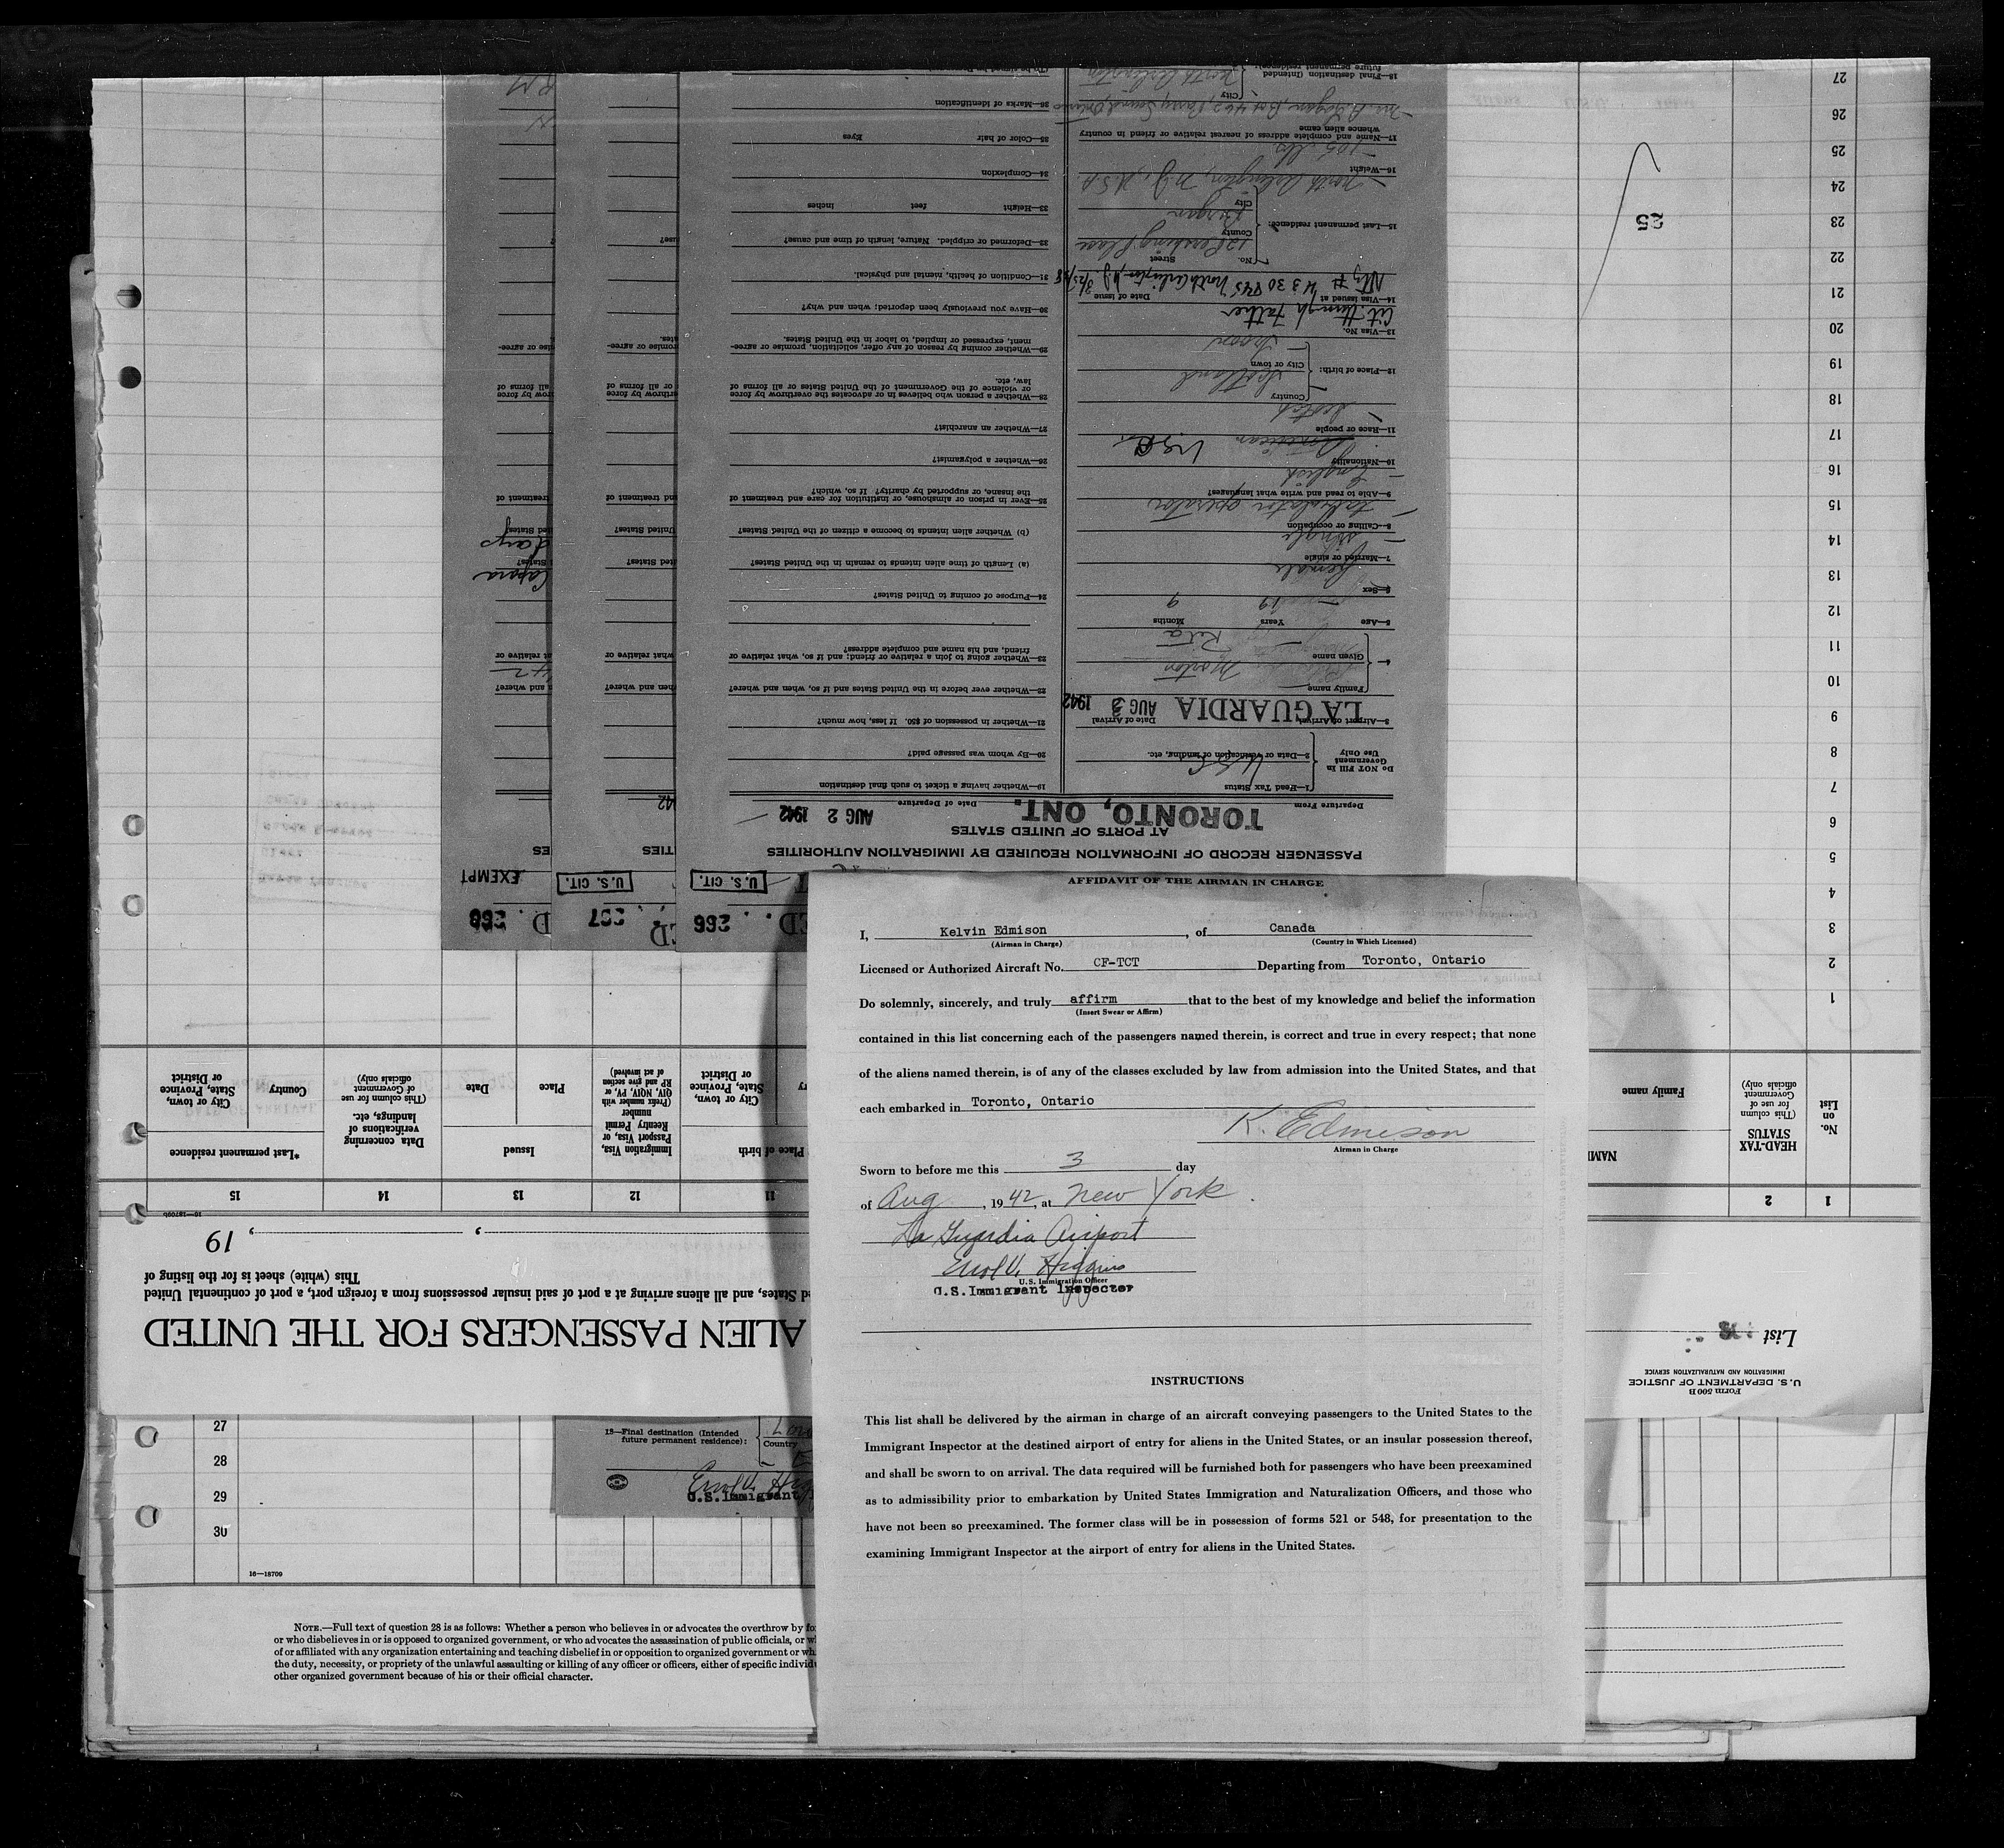 AFFIDAVIT OF THE AIRMAN IN CHARGE
I, Kelvin Edmison, of Canada
(Airman in Charge) (Country in Which Licensed)
Licensed or Authorized Aircraft No. CF-TCT Departing from Toronto, Ontario
Do solemnly, sincerely, and truly affirm that to the best of my knowledge and belief the information
(Insert Swear or Affirm)
contained in this list concerning each of the passengers named therein, is correct and true in every respect; that none
of the aliens named therein, is of any of the classes excluded by law from admission into the United States, and that
each embarked in Toronto, Ontario
K. Edmison
Airman in Charge
Sworn to before me this 3 day
of Aug, 1942, at New York.
La Guardia Airport
Higgins
U.S. Immigration Officer
U.S. Immigrant Inspector
INSTRUCTIONS
This list shall be delivered by the airman in charge of an aircraft conveying passengers to the United States to the
Immigrant Inspector at the destined airport of entry for aliens in the United States, or an insular possession thereof,
and shall be sworn to on arrival. The data required will be furnished both for passengers who have been preexamined
as to admissibility prior to embarkation by United States Immigration and Naturalization Officers, and those who
have not been so preexamined. The former class will be in possession of forms 521 or 548, for presentation to the
examining Immigrant Inspector at the airport of entry for aliens in the United States.
27
28
29
30
16—18709
18—Final destination (Intended
future permanent residence):
Country
U.S. Immigrant
NOTE.—Full text of question 28 is as follows: Whether a person who believes in or advocates the overthrow by
or who disbelieves in or is opposed to organized government, or who advocates the assassination of public officials, or
of or affiliated with any organization entertaining and teaching disbelief in or opposition to organized government or
the duty, necessity, or propriety of the unlawful assaulting or killing of any officer or officers, either of specific
other organized government because of his or their official character.
Form 500 B
U.S. DEPARTMENT OF JUSTICE
IMMIGRATION AND NATURALIZATION SERVICE
List
ALIEN PASSENGERS FOR THE UNITED
States, and all aliens arriving at a port of said insular possessions from a foreign port, a port of continental United
This (white) sheet is for the listing of
, 19
16—18709b
1 2 11 12 13 14 15
No. on List
HEAD-TAX STATUS
(This column for use of Government officials only)
Family name
Place of birth
City or town, State, Province or District
Immigration Visa, Passport Visa, or Reentry Permit number
(Prefix number with QIV, NQIV, PV, or RP and give section of act involved)
Issued
Place
Date
Data concerning verifications of landings, etc.
(This column for use of Government officials only)
*Last permanent residence
Country
City or town, State, Province or District
1
2
3
4
5
6
7
8
9
10
11
12
13
14
15
16
17
18
19
20
21
22
23
24
25
26
27
25
266
U.S. CIT.
267
U.S. CIT.
268
EXEMPT
PASSENGER RECORD OF INFORMATION REQUIRED BY IMMIGRATION AUTHORITIES
AT PORTS OF UNITED STATES
Departure From TORONTO, ONT. Date of Departure AUG 2 1942
Do NOT Fill In
Government
Use Only
1—Head Tax Status
2—Data or verification of landing, etc.
USC
3—Airport of Arrival LA GUARDIA Date of Arrival AUG 3 1942
4
Family name Morton
Given name Rita
5—Age Years 19 Months 9
6—Sex Female
7—Married or single Single
8—Calling or occupation tabulator operator
9—Able to read and write what languages? English
10—Nationality American USA
11—Race or people Scotch
12—Place of birth: Country Scotland
City or town Troon
13—Visa No. Cit. through Father
14—Visa issued at Date of issue
15—Last permanent residence:
No. Street 12 Pershing Place
County Bergen
City North Arlington, N.J., U.S.A.
16—Weight 105 lbs
17—Name and complete address of nearest relative or friend in country
whence alien came
Box 462, Parry Sound, Ontario
18—Final destination (Intended
future permanent residence):
City North Arlington
19—Whether having a ticket to such final destination
20—By whom was passage paid?
21—Whether in possession of $50. If less, how much?
22—Whether ever before in the United States and if so, when and where?
23—Whether going to join a relative or friend; and if so, what relative or
friend, and his name and complete address?
24—Purpose of coming to United States?
(a) Length of time alien intends to remain in the United States?
(b) Whether alien intends to become a citizen of the United States?
25—Ever in prison or almshouse, or institution for care and treatment of
the insane, or supported by charity? If so, which?
26—Whether a polygamist?
27—Whether an anarchist?
28—Whether a person who believes in or advocates the overthrow by force
or violence of the Government of the United States or all forms of
law, etc.
29—Whether coming by reason of any offer, solicitation, promise or agree-
ment, expressed or implied, to labor in the United States.
30—Have you previously been deported; when and why?
31—Condition of health, mental and physical.
32—Deformed or crippled. Nature, length of time and cause?
33—Height feet inches
34—Complexion
35—Color of hair Eyes
36—Marks of identification